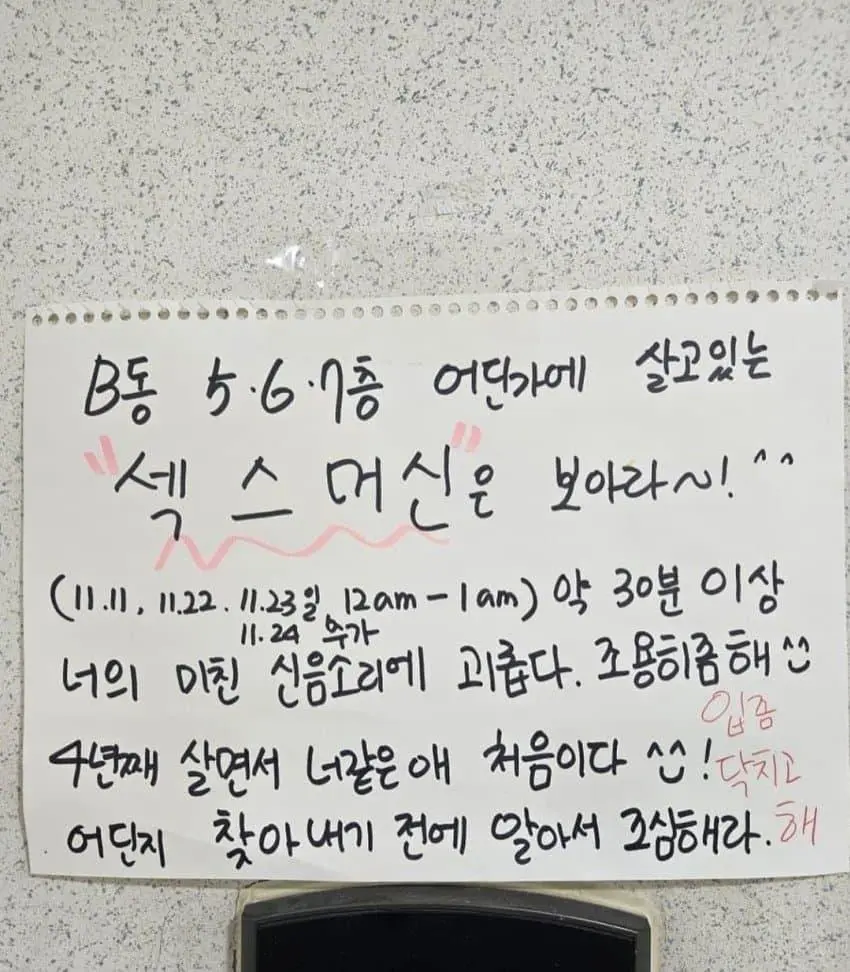 B동 5·6·7층 어딘가에 살고있는
"섹스머신"은 보아라~! ^^
(11.11, 11.22. 11.23일, 12am-1am) 약 30분 이상
11.24 추가
너의 미친 신음소리에 괴롭다. 조용히좀해^^
4년째 살면서 너같은애 처음이다 ^^!
어딘지 찾아내기 전에 알아서 조심해라.
입좀
닥치고
해